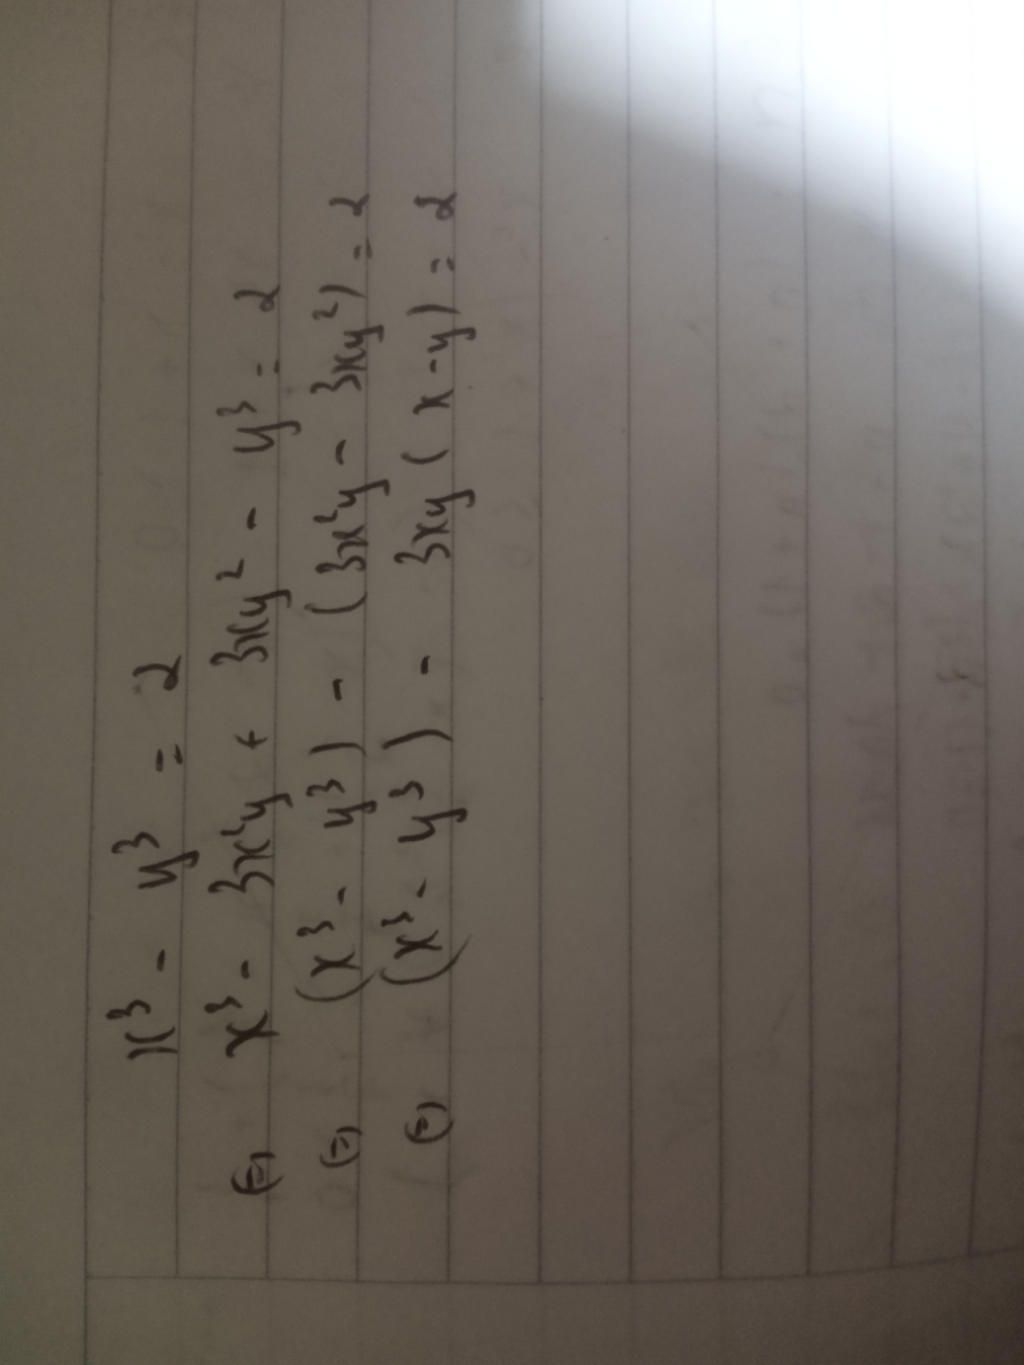 x³ - y³ = 2
(=) x³ - 3x²y + 3xy² - y³ = 2
(=) (x³ - y³) - (3x²y - 3xy²) = 2
(=) (x³ - y³) - 3xy (x - y) = 2